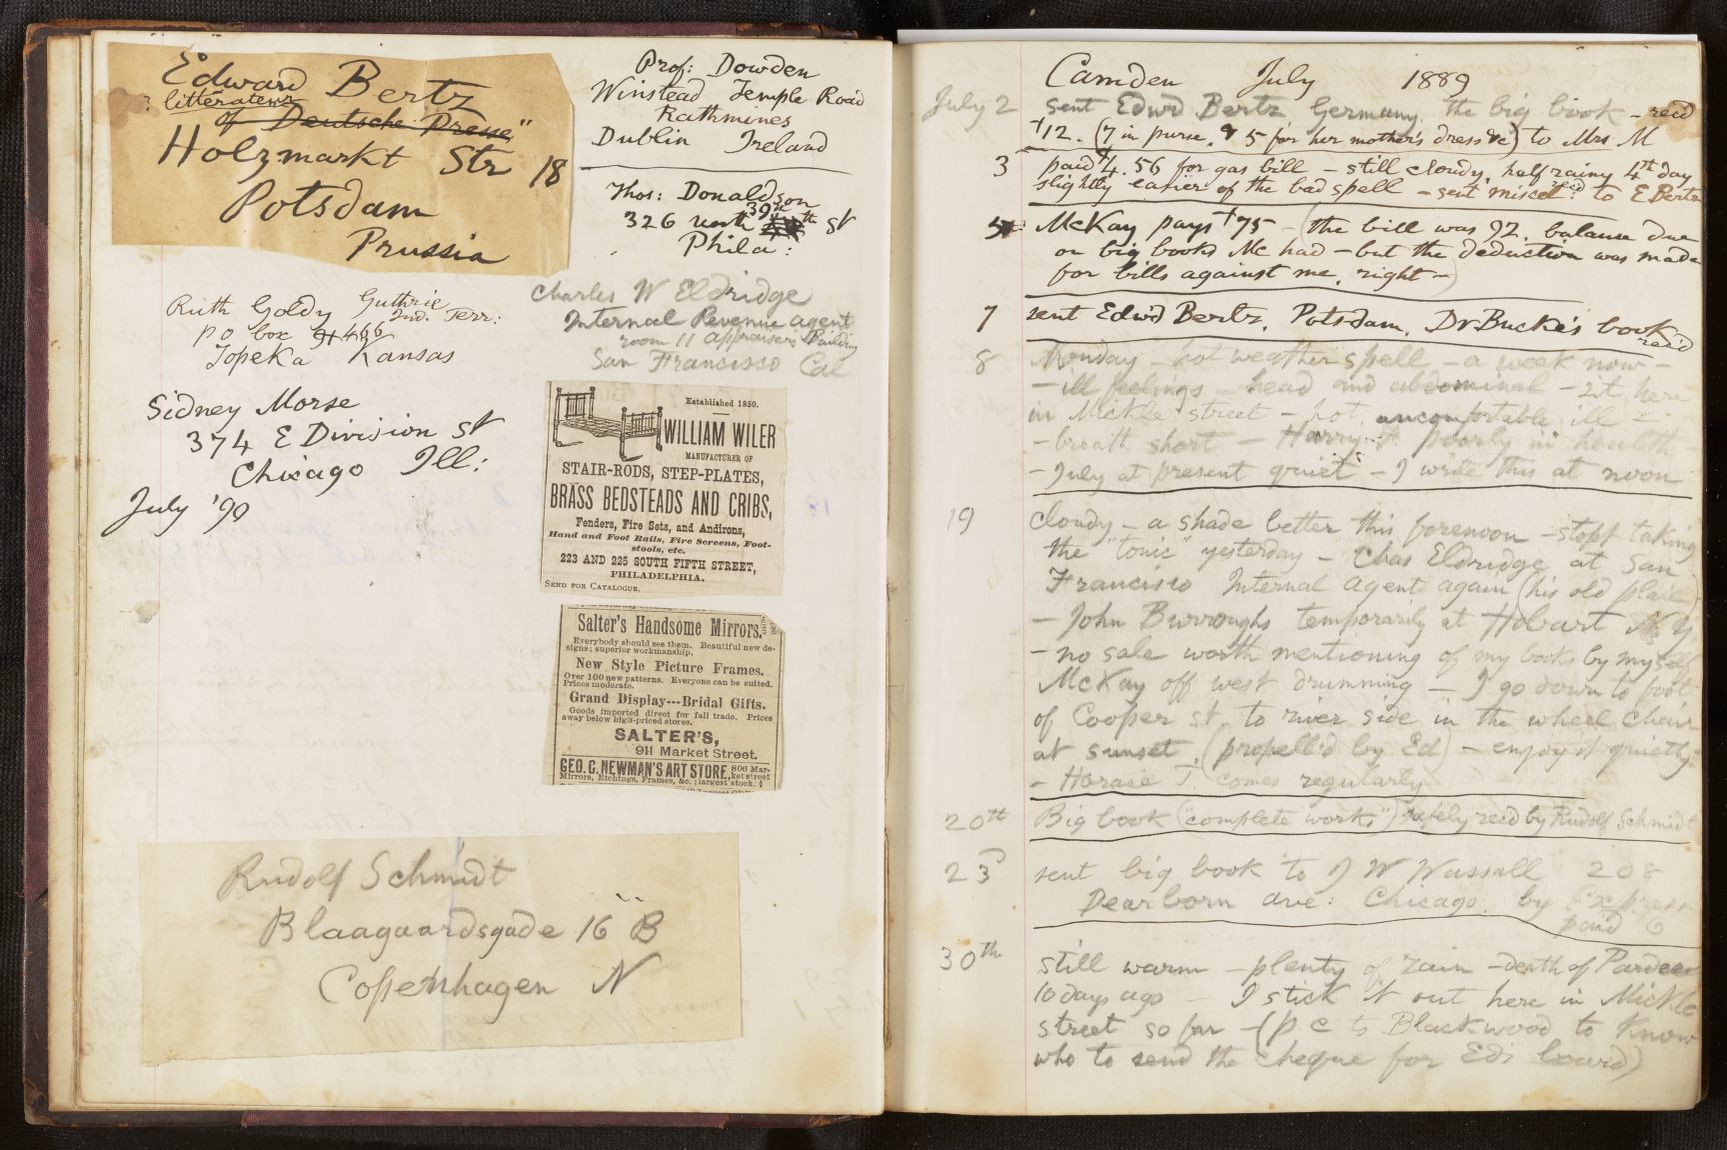 Edward Bertz
littérateur
of Deutsche Presse"
Holzmarkt Str 18
Potsdam
Prussia
Prof: Dowden
Winstead Temple Road
Rathmines
Dublin Ireland
Thos: Donaldson
39th
326 north st
Phila:
Ruth Goldy Guthrie
Ind. Terr:
p o box 466
Topeka Kansas
Charles W Eldridge
Internal Revenue agent
room 11 appraisers Building
San Francisco Cal
Sidney Morse
374 E Division st
Chicago Ill:
July '90
Established 1850.
WILLIAM WILER
MANUFACTURER OF
STAIR-RODS, STEP-PLATES,
BRASS BEDSTEADS AND CRIBS,
Fenders, Fire Sets, and Andirons,
Hand and Foot Rails, Fire Screens, Foot-
stools, etc.
223 AND 225 SOUTH FIFTH STREET,
PHILADELPHIA.
SEND FOR CATALOGUE.
Salter's Handsome Mirrors.
Everybody should see them. Beautiful new de-
signs; superior workmanship.
New Style Picture Frames.
Over 100 new patterns. Everyone can be suited.
Prices moderate.
Grand Display---Bridal Gifts.
Goods imported direct for fall trade. Prices
away below high-priced stores.
SALTER'S,
911 Market Street.
GEO. C. NEWMAN'S ART STORE, 806 Mar-
ket street
Mirrors, Etchings, Frames, &c.; largest stock.
Rudolf Schmidt
Blaagaardsgade 16 B
Copenhagen N
Camden July 1889
July 2 sent Edwd Bertz Germany, the big book - rec'd
$12. (7 in purse, & 5 for her mother's dress &c) to Mrs M
3 paid $4.56 for gas bill - still cloudy, half rainy 4th day
slightly easier of the bad spell - sent miscel: rec'd to E Bertz
5 McKay pays $75 - (the bill was 92. balance due
on big books Mc had - but the deduction was made
for bills against me, right -)
7 sent Edw'd Bertz, Potsdam, Dr Bucke's book
rec'd
8 Monday - hot weather spell - a week now -
- ill feelings - head and abdominal - sit here
in Mickle street - hot, uncomfortable, ill -
- breath short - Harry poorly in health -
- July at present quiet - I write this at noon
19 cloudy - a shade better this forenoon - stopt taking
the "tonic" yesterday - Chas Eldridge at San
Francisco Internal Agent again (his old place)
- John Burroughs temporarily at Hobart N Y
- no sale worth mentioning of my books by myself
McKay off west drumming - I go down to foot
of Cooper st. to river side in the wheel chair
at sunset, (propell'd by Ed) - enjoy it quietly -
- Horace T. comes regularly
20th Big book ("complete works") safely rec'd by Rudolf Schmidt
23 sent big book to J W Wassall 208
Dearborn ave: Chicago, by Express
paid
30th still warm - plenty of rain - death of Pardee
10 days ago - I stick it out here in Mickle
street so far - (p c to Blackwood to know
who to send the cheque for Ed's board)